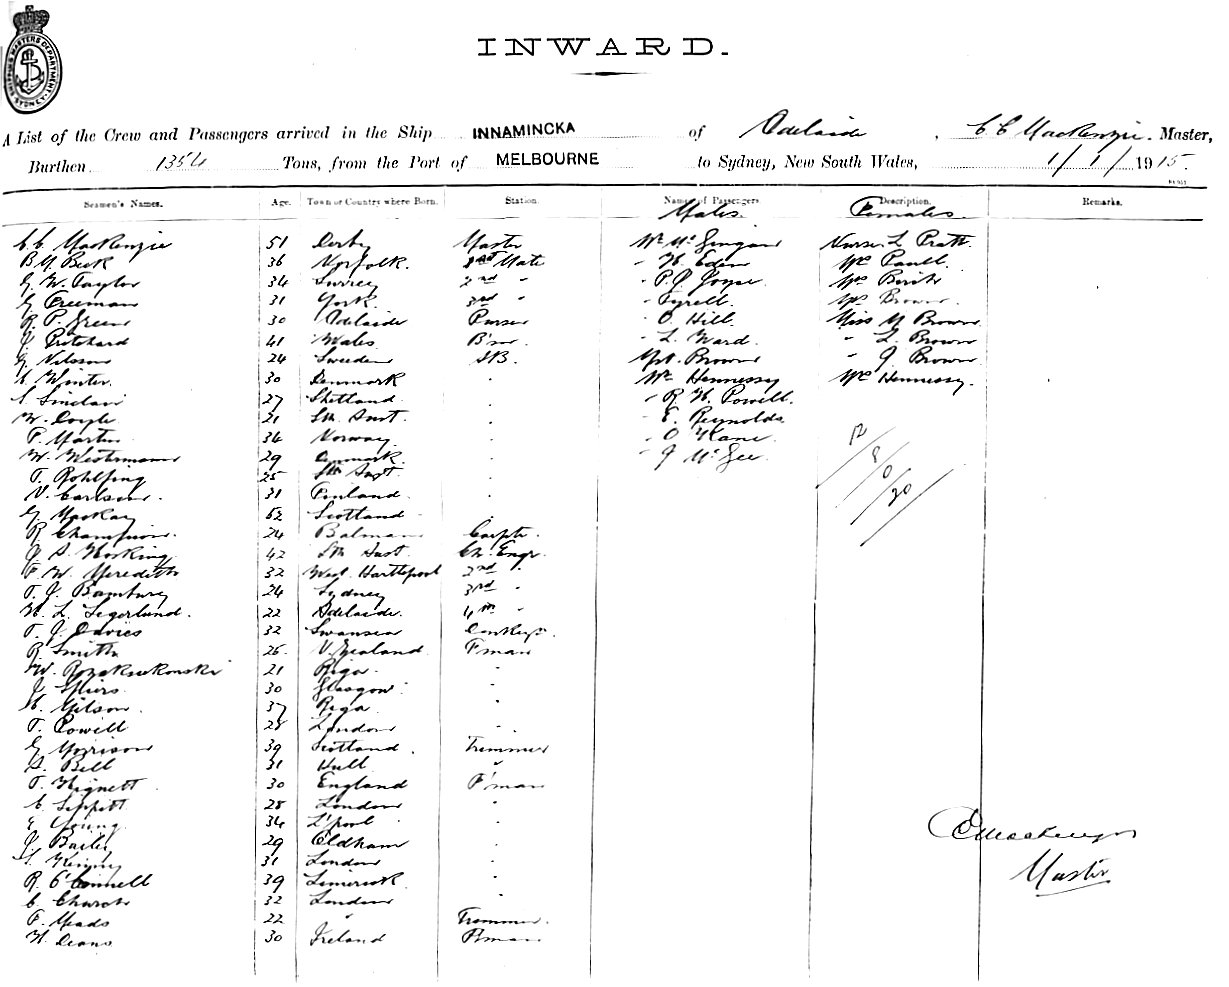 SHIPPING MASTERS DEPARTMENT SYDNEY
INWARD.
A List of the Crew and Passengers arrived in the Ship INNAMINCKA of Adelaide, C C MacKenzie. Master,
Burthen 1354 Tons, from the Port of MELBOURNE to Sydney, New South Wales, 1/1/1915.
Seamen's Names. Age. Town or Country where Born. Station. Names of Passengers Description. Remarks.
Males. Females.
C C MacKenzie 51 Derby Master Mr Nurse L Pratt
B M Beck 36 Norfolk. 1st Mate " H. Eden Mrs
G W. Taylor 34 Surrey 2nd " " P. J Joyce Mrs
G Freeman 31 York. 3rd " " Tyrell. Mrs Brown.
R P. Green 30 Adelaide Purser " O. Hill. Miss M Brown
J Pritchard 41 Wales. B'sn " L. Ward. " L. Brown
G Nilsson 24 Sweden AB. Mr. Brown " J Brown
Winter. 30 Denmark " Mr Hennessy Mrs Hennessy.
Sinclair 27 Shetland. " " R H. Powell.
W. Doyle 21 Sth Aust. " " E. Reynolds
P. Martin 34 Norway. " " O'Kane.
W. Westermann 29 Denmark. " " J McGee.
T. Rohlfing 25 Sth Aust "
V. Carlson. 31 Finland. "
G Mackay 62 Scotland "
R Champion. 24 Balmain Carptr.
J S. Hosking 42 Sth Aust. Ch. Engr.
F. W. Meredith 32 West Hartlepool 2nd "
T. J. Bambury 24 Sydney 3rd "
H. L. Segerlund. 22 Adelaide. 4th "
T. J. Davies 32 Swansea Donkeyn.
R. Smith 26 N. Zealand. F'man
W. 21 Riga. "
J. Spiers. 30 Glasgow. "
37 Riga "
T. Powell 28 London "
G Morrison 39 Scotland. Trimmer
A. Bell 31 Hull "
T. Hignett 30 England F'man
C. 28 London "
E Young. 34 L'pool "
J. Bailey 29 Oldham "
31 London "
R. O'Connell 39 Limerick "
C. Church 32 London "
F. Meads 22 " Trimmer.
H. Deans 30 Ireland F'man
12/8/0/20
C C Mackenzie
Master